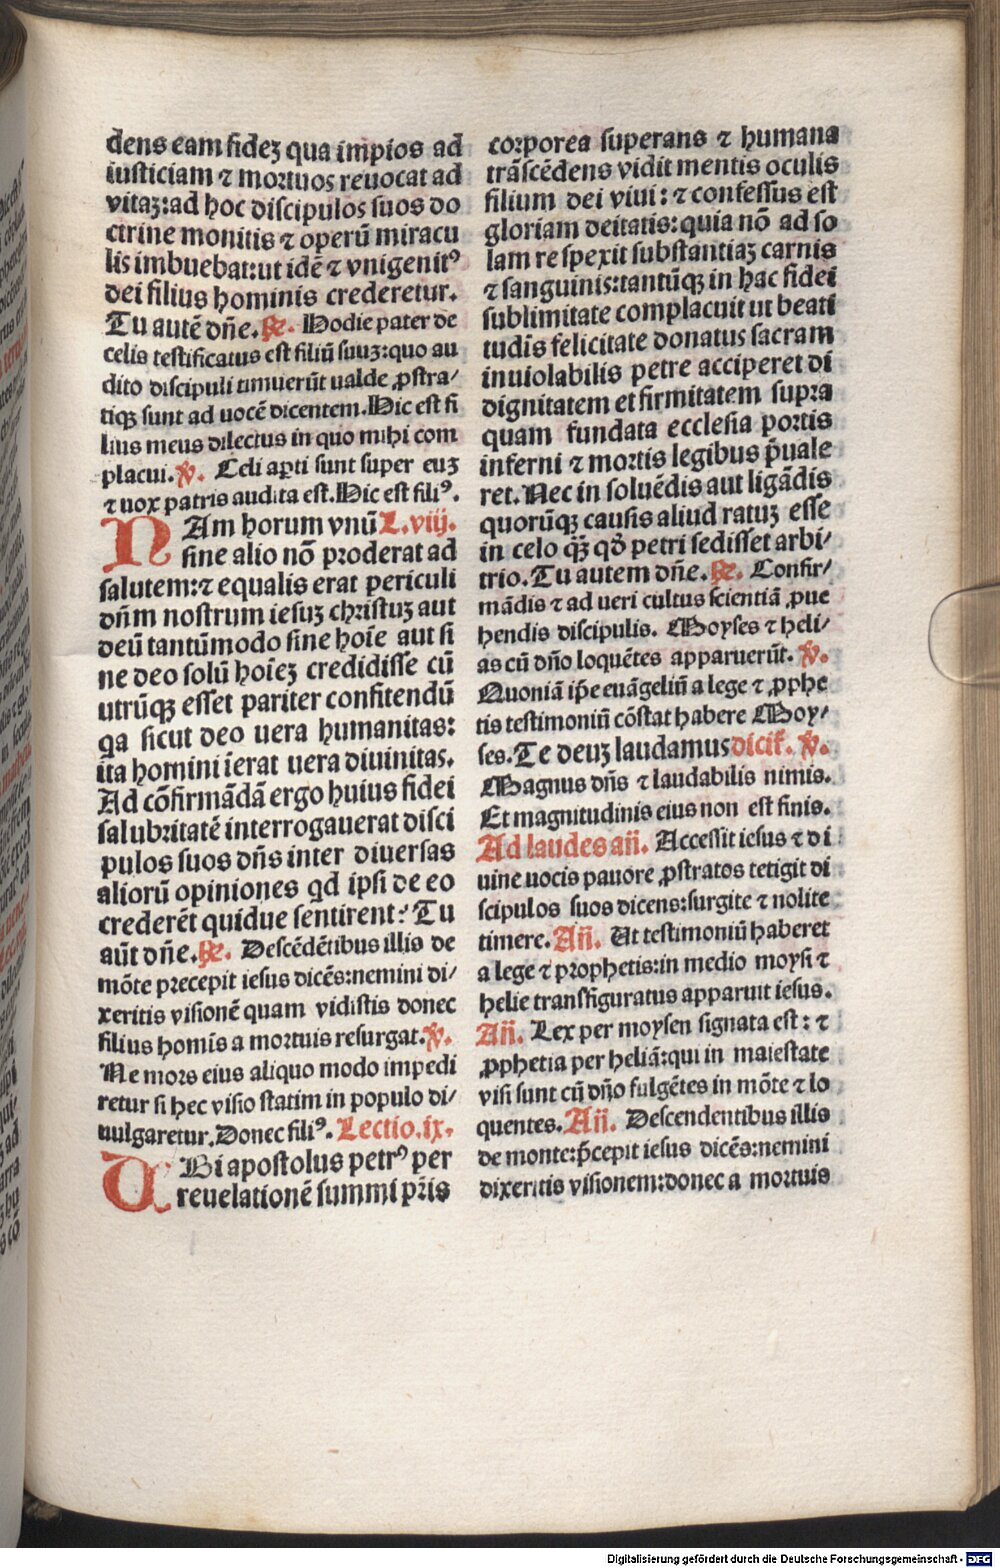 dens eam fideʒ qua impios ad
iusticiam ⁊ mortuos reuocat ad
vitaʒ:ad hoc discipulos suos do
ctrine monitis ⁊ operū miracu
lis imbuebat:ut idē ⁊ vnigenitꝰ
dei filius hominis crederetur.
Tu autē dn̄e. ℟. Hodie pater de
celis testificatus est filiū suuʒ:quo au
dito discipuli timuerūt ualde ꝓstra/
tiqʒ sunt ad uocē dicentem. Hic est fi
lius meus dilectus in quo mihi com
placui. ℣. Celi aꝑti sunt super euʒ
⁊ uox patris audita est. Hic est filiꝰ.
NAm horum vnū L.viij.
sine alio nō proderat ad
salutem:⁊ equalis erat periculi
dn̄m nostrum iesuʒ christuʒ aut
deū tantūmodo sine hoīe aut si
ne deo solū hoīeʒ credidisse cū
utrūqʒ esset pariter confitendū
qa sicut deo uera humanitas:
ita homini īerat uera diuinitas.
Ad cōfirmādā ergo huius fidei
salubritatē interrogauerat disci
pulos suos dn̄s inter diuersas
aliorū opiniones qd ipsi de eo
crederēt quidue sentirent? Tu
aūt dn̄e. ℟. Descēdētibus illis de
mōte precepit iesus dicēs:nemini di/
xeritis visionē quam vidistis donec
filius homīs a mortuis resurgat. ℣.
Ne mors eius aliquo modo impedi
retur si hec visio statim in populo di/
uulgaretur. Donec filiꝰ. Lectio.ix.
UBi apostolus petrꝰ per
reuelationē summi pr̄is
corporea superans ⁊ humana
trāscēdens vidit mentis oculis
filium dei viui: ⁊ confessus est
gloriam deitatis:quia nō ad so
lam respexit substantiaʒ carnis
⁊ sanguinis:tantūqʒ in hac fidei
sublimitate complacuit ut beati
tudīs felicitate donatus sacram
inuiolabilis petre acciperet di
dignitatem et firmitatem supra
quam fundata ecclesia portis
inferni ⁊ mortis legibus p̄uale
ret. Nec in soluēdis aut ligādis
quorūqʒ causis aliud ratuʒ esse
in celo qʒ̄ qd̄ petri sedisset arbi/
trio. Tu autem dn̄e. ℟. Confir/
mādis ⁊ ad ueri cultus scientiā ꝓue
hendis discipulis. Moyses ⁊ heli/
as cū dn̄o loquētes apparuerūt. ℣.
Quoniā ip̄e euāgeliū a lege ⁊ ꝓphe
tis testimoniū cōstat habere Moy/
ses. Te deuʒ laudamus dicit̄. ℣.
Magnus dn̄s ⁊ laudabilis nimis.
Et magnitudinis eius non est finis.
Ad laudes an̄. Accessit iesus ⁊ di
uine uocis pauore ꝓstratos tetigit di
scipulos suos dicens:surgite ⁊ nolite
timere. An̄. Ut testimoniū haberet
a lege ⁊ prophetis:in medio moysi ⁊
helie transfiguratus apparuit iesus.
An̄. Lex per moysen signata est: ⁊
ꝓphetia per heliā:qui in maiestate
visi sunt cū dn̄o fulgētes in mōte ⁊ lo
quentes. An̄. Descendentibus illis
de monte:p̄cepit iesus dicēs:nemini
dixeritis visionem:donec a mortuis
Digitalisierung gefördert durch die Deutsche Forschungsgemeinschaft - DFG